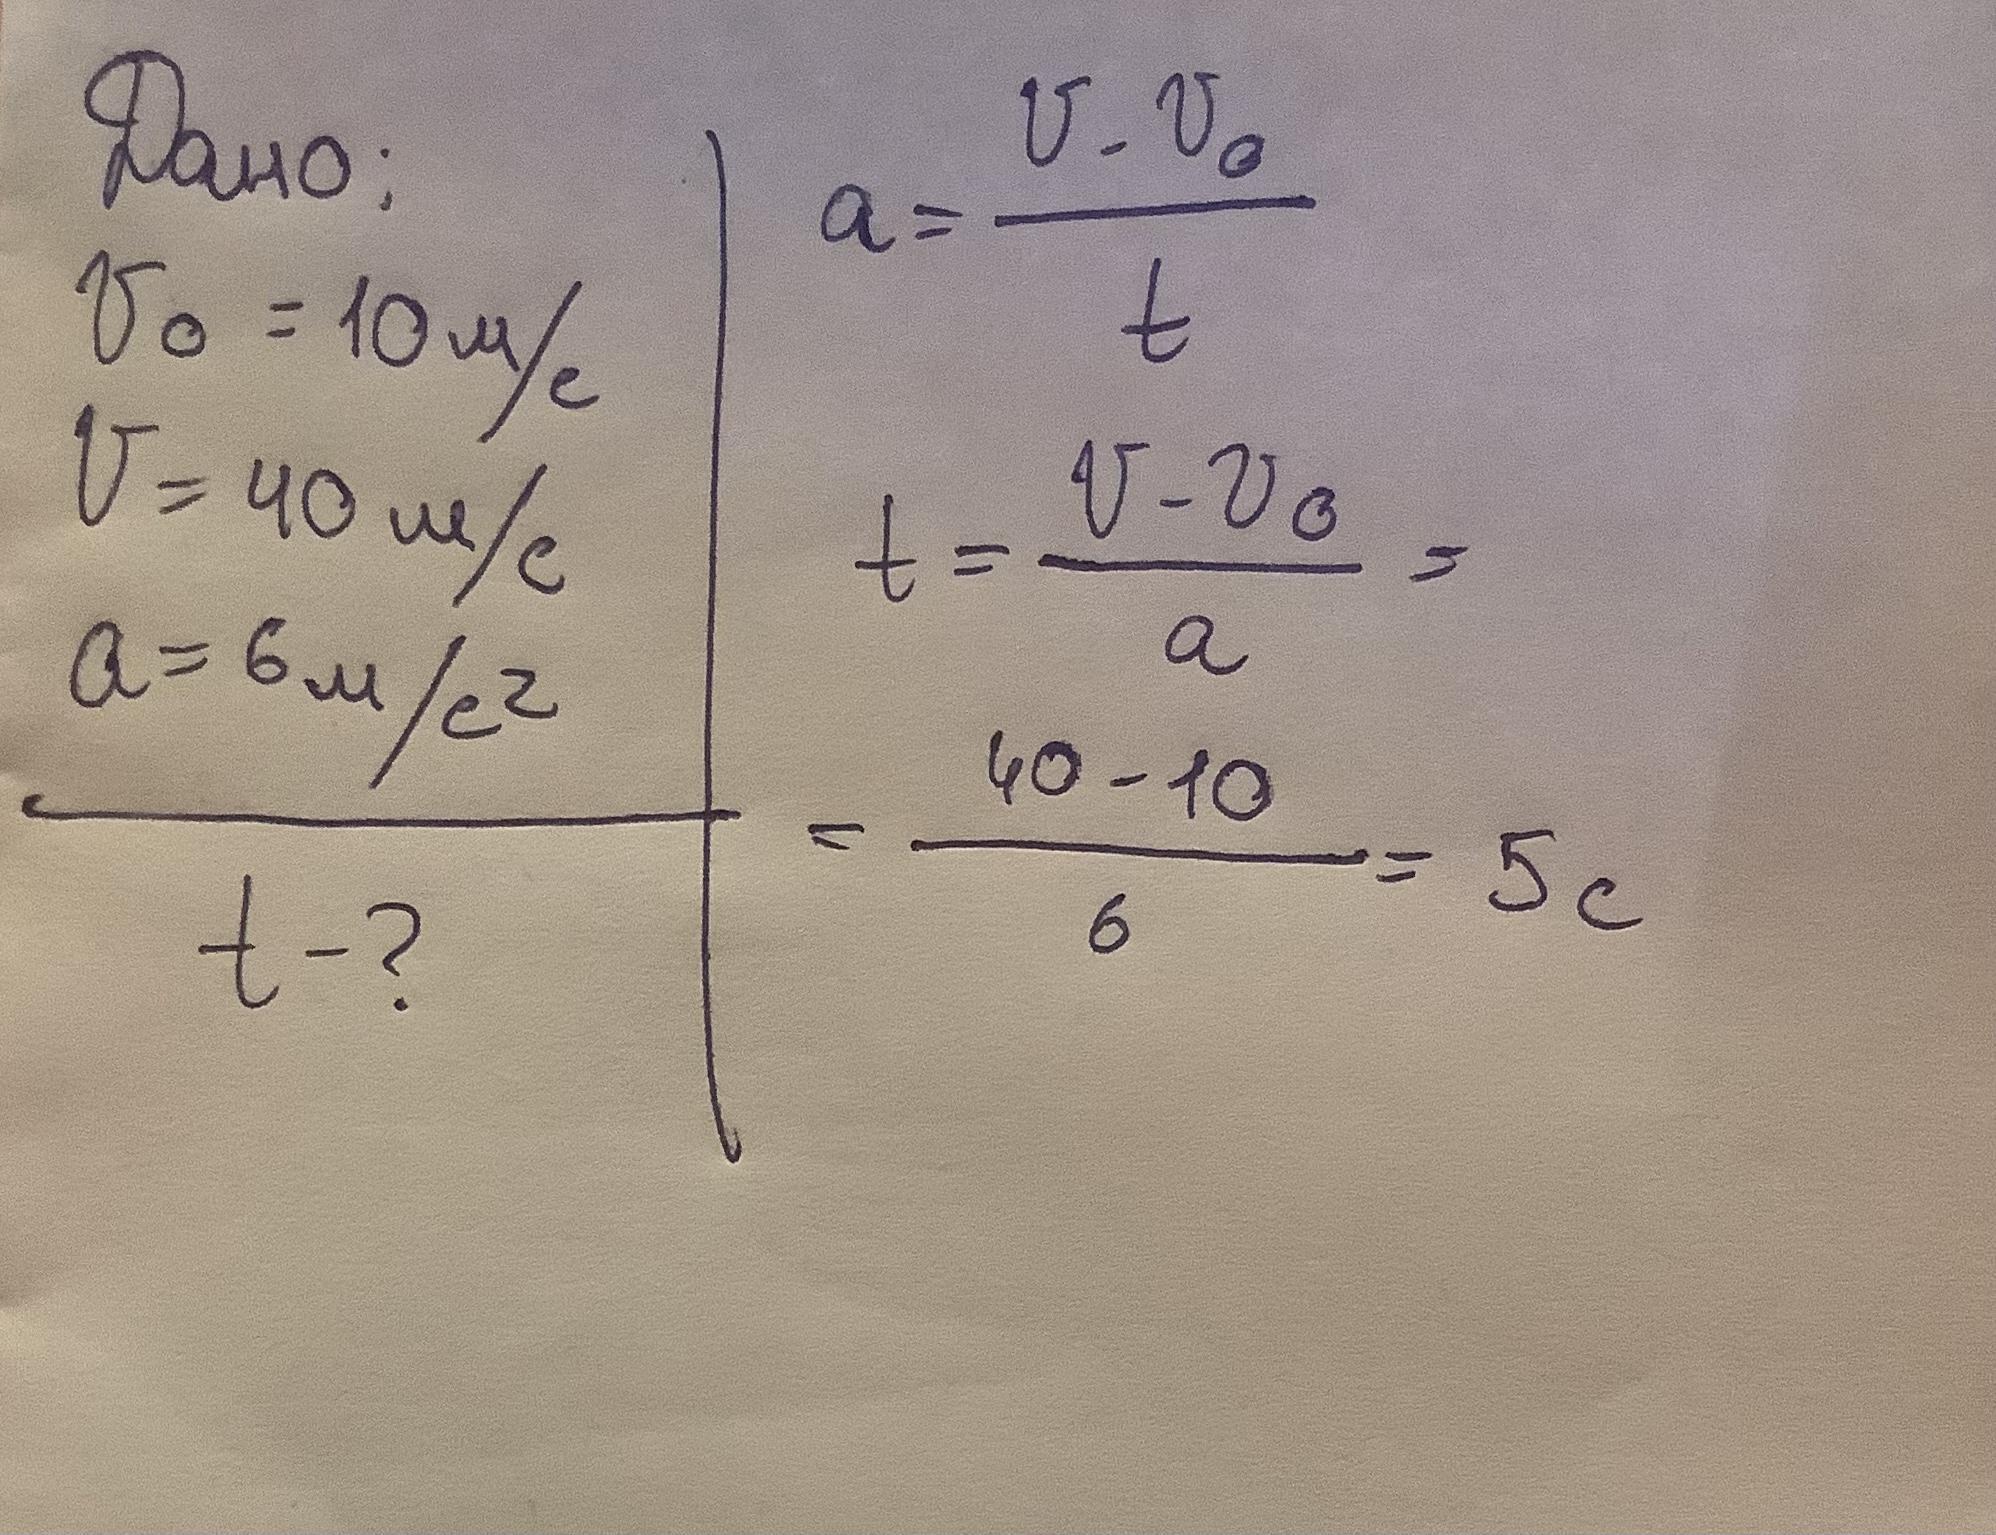 Дано:
v₀ = 10 м/с
v = 40 м/с
a = 6 м/с²
t - ?
a = (v - v₀) / t
t = (v - v₀) / a =
= (40 - 10) / 6 = 5 с